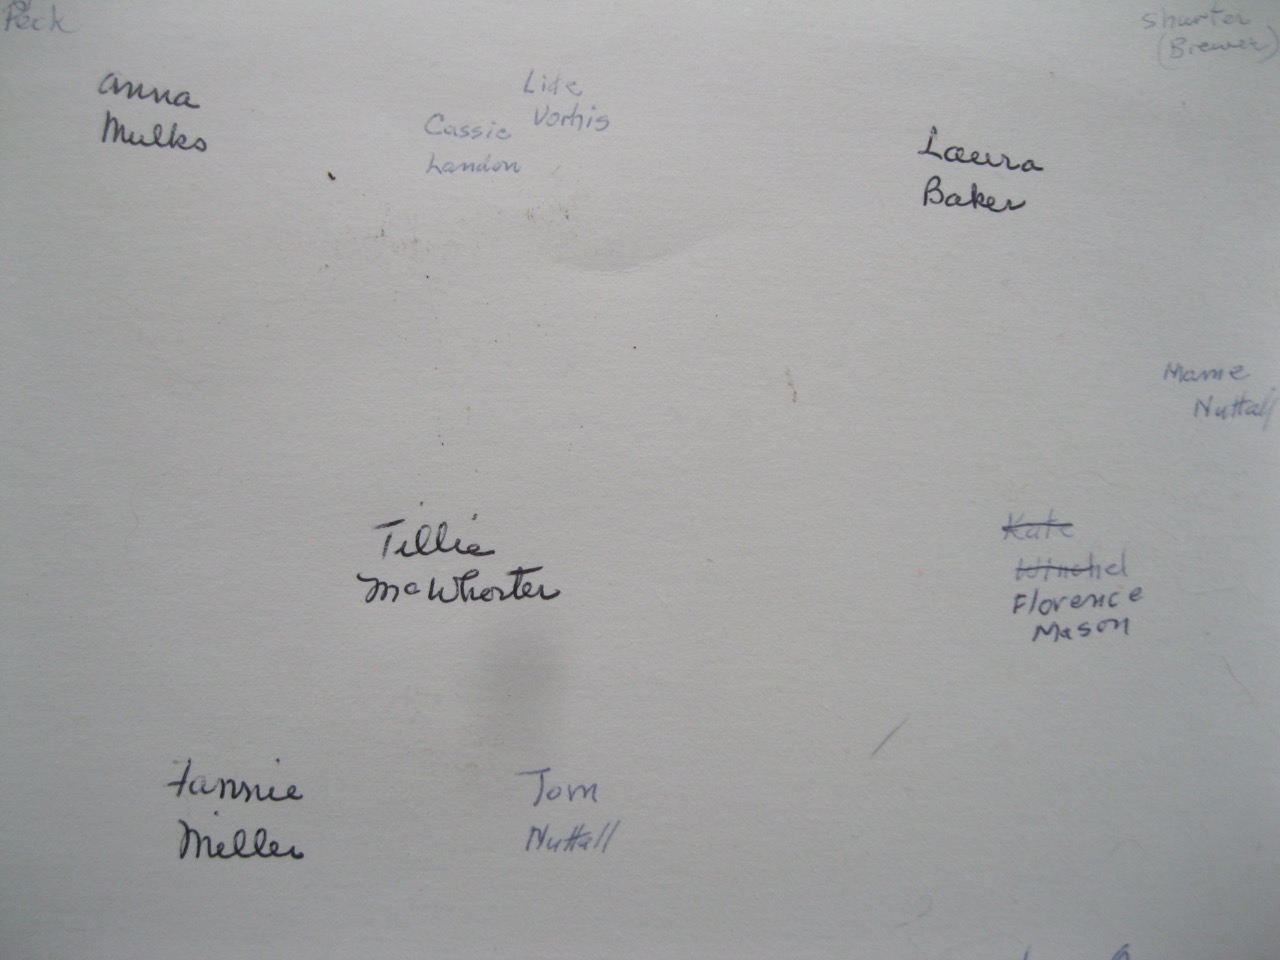 Peck
Shurter
(Brewer)
Anna
Mulks
Lide
Vorhis
Cassie
Landon
Laura
Baker
Mame
Nuttall
Tillie
McWhorter
Kate
Winchel
Florence
Mason
Fannie
Miller
Tom
Nuttall